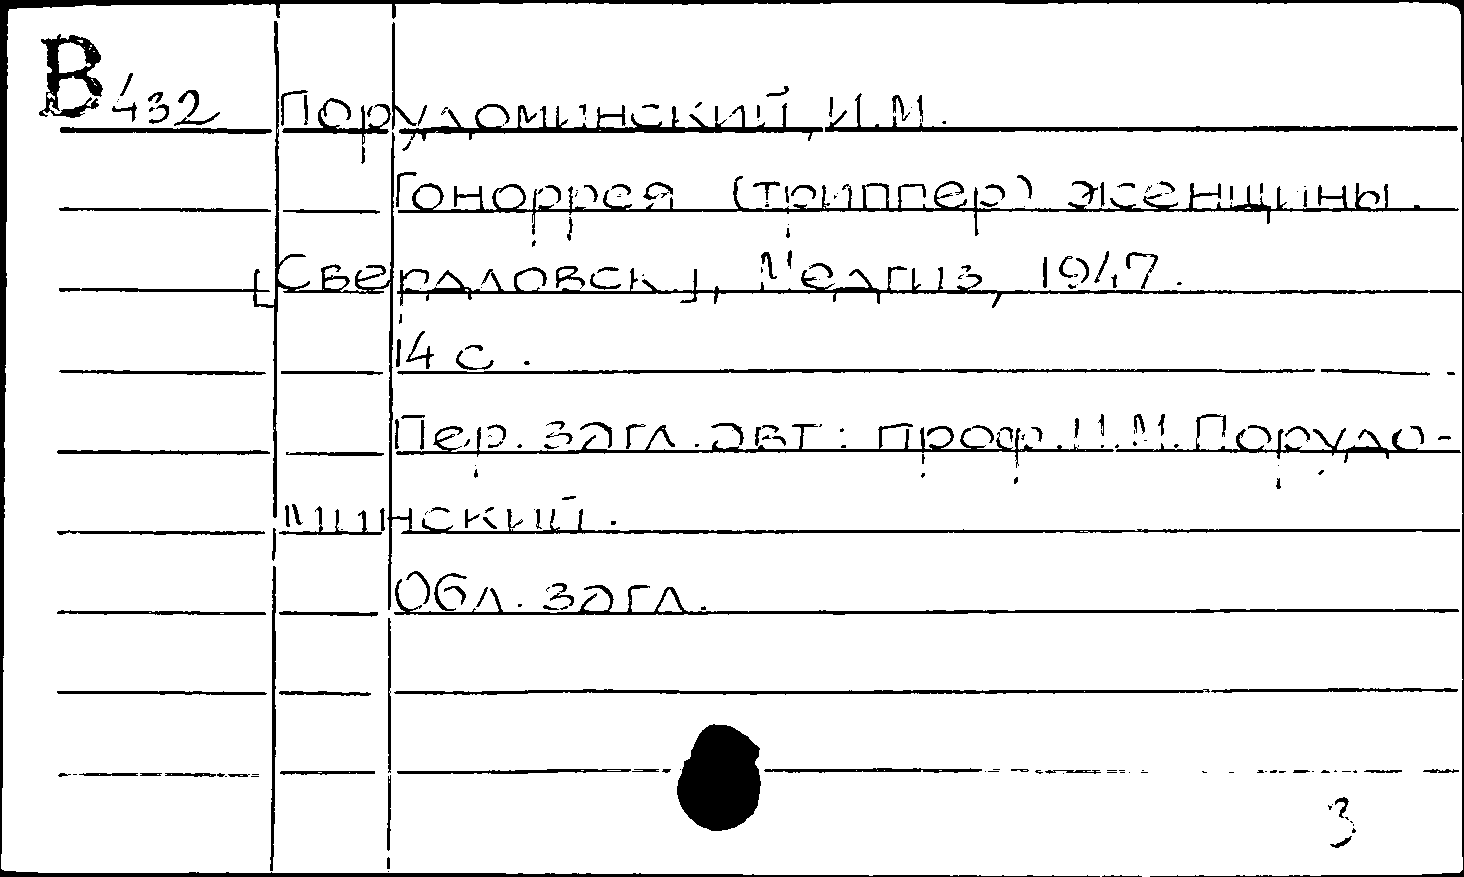 В 432 Порудоминский, И.М.
Гоноррея (триппер) женщины.
[Свердловск], Медгиз, 1947.
14 с.
Пер. загл. авт: проф. И.М. Порудо-
минский.
Обл. загл.
3